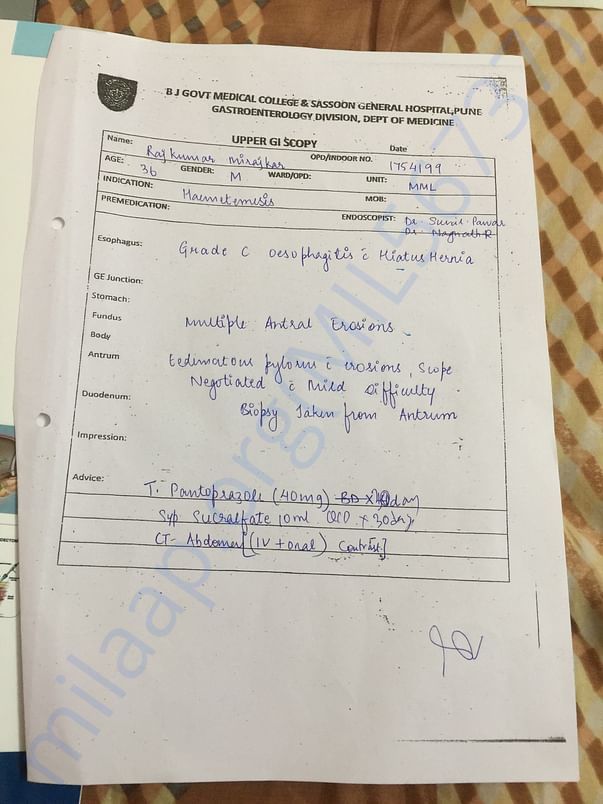 B J GOVT MEDICAL COLLEGE & SASSOON GENERAL HOSPITAL,PUNE
GASTROENTEROLOGY DIVISION, DEPT OF MEDICINE
UPPER GI SCOPY
Date
Name: Rajkumar Mirajkar OPD/INDOOR NO. 1754199
AGE: 36 GENDER: M WARD/OPD: UNIT: MML
INDICATION: Haemetemesis MOB:
PREMEDICATION: ENDOSCOPIST: Dr. Sunil Pawar
Dr. Nagnath R
Esophagus: Grade C Oesophagitis c̄ Hiatus Hernia
GE Junction:
Stomach:
Fundus Multiple Antral Erosions
Body
Antrum Eedimatous pylorus c̄ erosions, Scope
Negotiated c̄ Mild Difficulty
Duodenum: Biopsy Taken from Antrum
Impression:
Advice:
T. Pantoprazole (40mg) BD x day
Syp Sucralfate 10ml QID x 30days
CT- Abdomen [(IV + oral) Contrast]
milaap.org/MIL567377